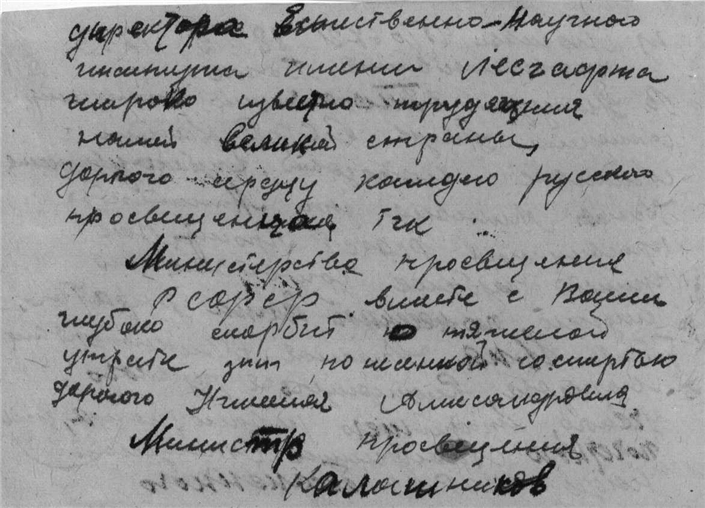 директора Естественно-Научного
института имени Лесгафта
широко известно трудящимся
нашей великой страны,
дорого сердцу каждого русского
просвещенца, тчк
Министерство просвещения
РСФСР вместе с Вами
глубоко скорбит о тяжелой
утрате зпт со смертью
дорогого Александровича
Министр просвещения
Калашников